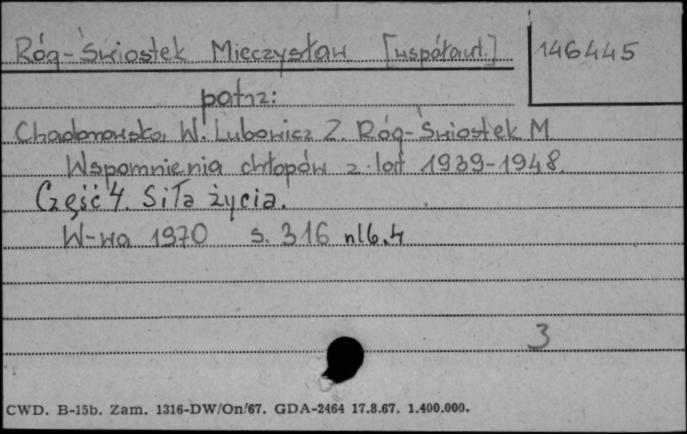 Róg-Świostek Mieczysław [współaut.]
146445
patrz:
Chadamowska, W. Lubowicz Z. Róg-Świostek M
Wspomnienia chłopów z lat 1939-1948.
Część 4. Siła życia.
W-wa 1970 s. 316 nlb. 4
3
CWD. B-15b. Zam. 1316-DW/On/67. GDA-2464 17.8.67. 1.400.000.